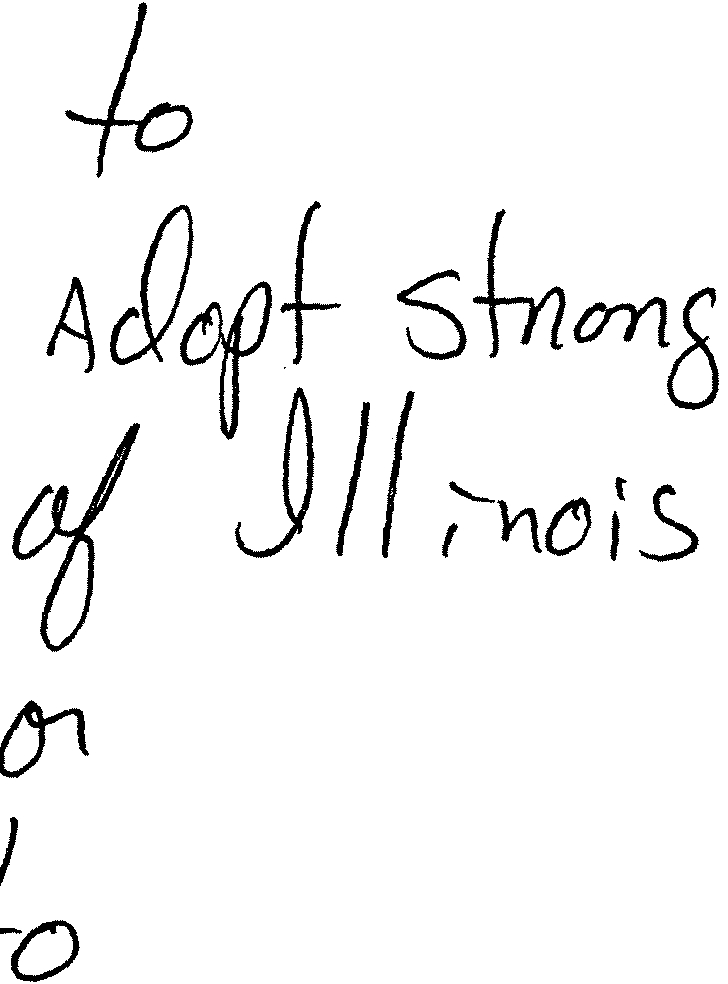 to
Adopt strong
of Illinois
or
to